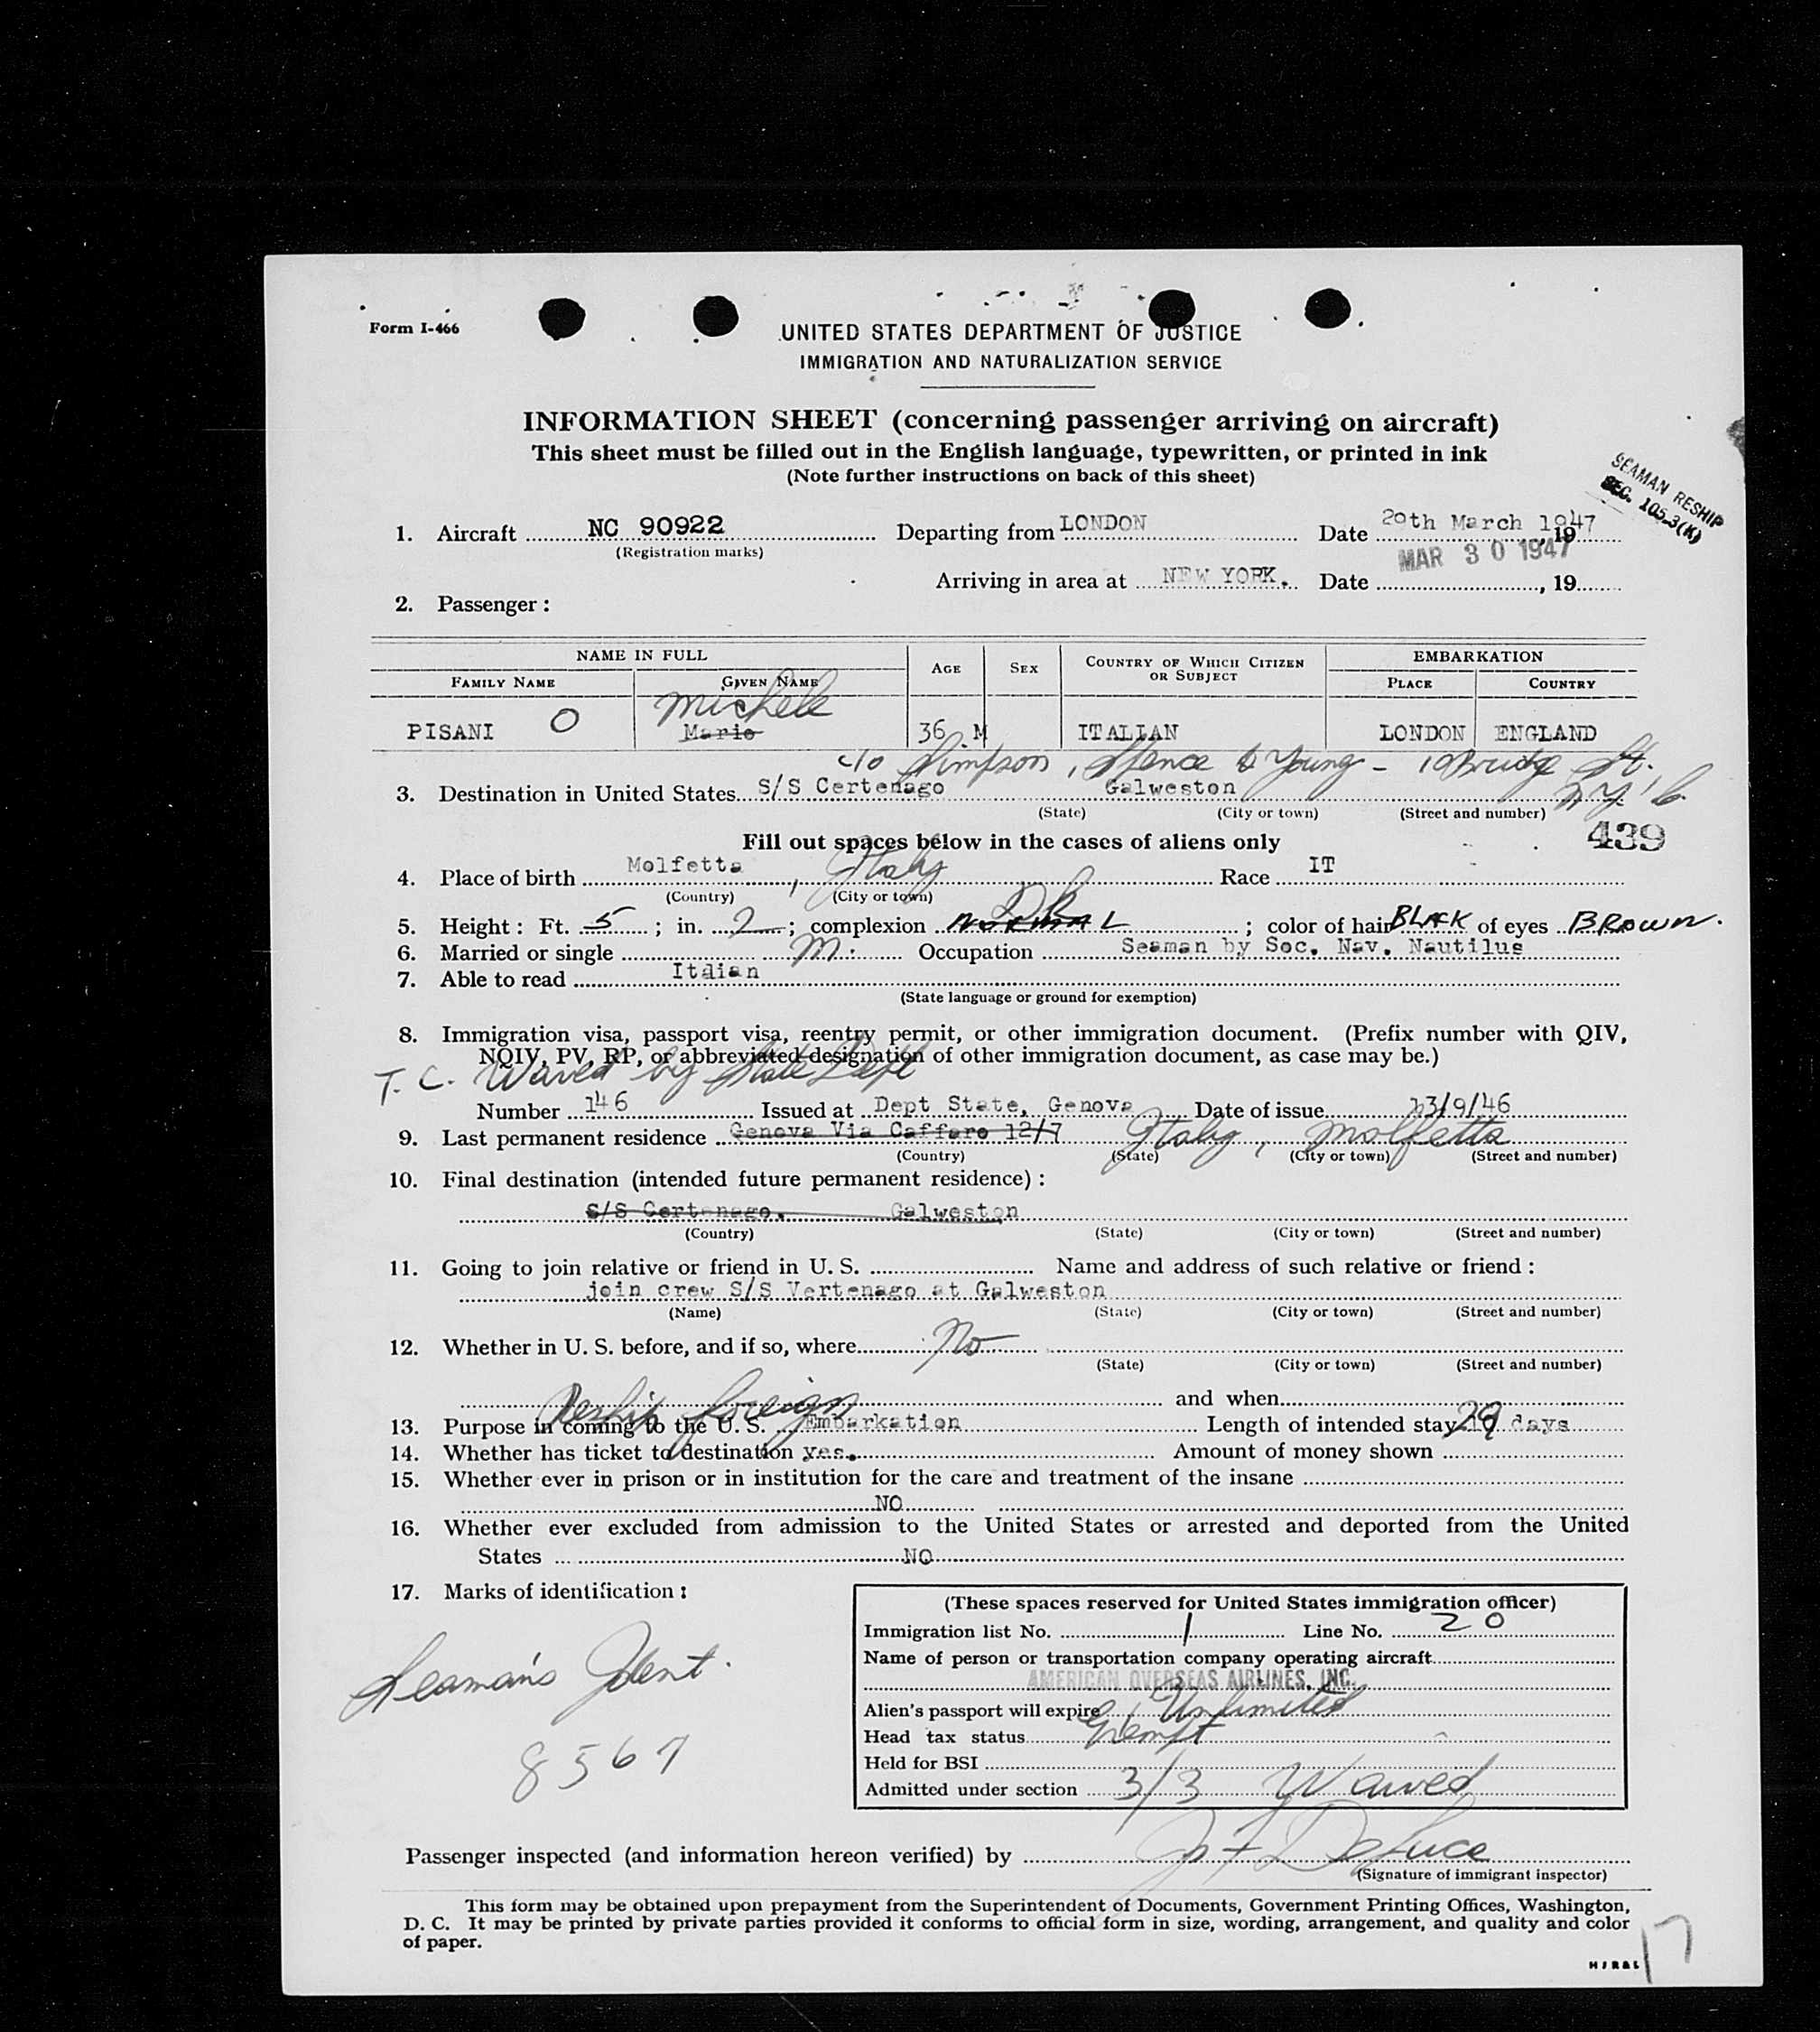 Form I-466
UNITED STATES DEPARTMENT OF JUSTICE
IMMIGRATION AND NATURALIZATION SERVICE
INFORMATION SHEET (concerning passenger arriving on aircraft)
This sheet must be filled out in the English language, typewritten, or printed in ink
(Note further instructions on back of this sheet)
SEAMAN RESHIP
SEC. 105.3(K)
1. Aircraft NC 90922 Departing from LONDON Date 29th March 1947, 19
(Registration marks)
MAR 30 1947
Arriving in area at NEW YORK. Date , 19
2. Passenger:
NAME IN FULL AGE SEX COUNTRY OF WHICH CITIZEN OR SUBJECT EMBARKATION
FAMILY NAME GIVEN NAME PLACE COUNTRY
Michele
PISANI O Mario 36 M ITALIAN LONDON ENGLAND
c/o Simpson, Spence & Young - 1 Bridge St.
N.Y.C.
3. Destination in United States S/S Certenago Galweston
(State) (City or town) (Street and number)
439
Fill out spaces below in the cases of aliens only
4. Place of birth Molfetta, Italy Race IT
(Country) (City or town)
5. Height: Ft. 5; in. 2; complexion NORMAL DK; color of hair BLACK of eyes BROWN.
6. Married or single M. Occupation Seaman by Soc. Nav. Nautilus
7. Able to read Italian
(State language or ground for exemption)
8. Immigration visa, passport visa, reentry permit, or other immigration document. (Prefix number with QIV,
NQIV, PV, RP, or abbreviated designation of other immigration document, as case may be.)
T.C. Waved by State Dept
Number 146 Issued at Dept State, Genova Date of issue 23/9/46
9. Last permanent residence Genova Via Caffaro 12/7 Italy, Molfetta
(Country) (State) (City or town) (Street and number)
10. Final destination (intended future permanent residence):
S/S Certenago. Galweston
(Country) (State) (City or town) (Street and number)
11. Going to join relative or friend in U. S. Name and address of such relative or friend:
join crew S/S Vertenago at Galweston
(Name) (State) (City or town) (Street and number)
12. Whether in U. S. before, and if so, where No
(State) (City or town) (Street and number)
and when
Reship foreign
13. Purpose in coming to the U. S. Embarkation Length of intended stay 29 days
14. Whether has ticket to destination yes. Amount of money shown
15. Whether ever in prison or in institution for the care and treatment of the insane
NO
16. Whether ever excluded from admission to the United States or arrested and deported from the United
States NO
17. Marks of identification:
Seaman's Ident.
8567
(These spaces reserved for United States immigration officer)
Immigration list No. 1 Line No. 20
Name of person or transportation company operating aircraft
AMERICAN OVERSEAS AIRLINES, INC.
Alien's passport will expire Unlimited
Head tax status Exempt
Held for BSI
Admitted under section 3/3 Waived
Passenger inspected (and information hereon verified) by J F DeLuca
(Signature of immigrant inspector)
This form may be obtained upon prepayment from the Superintendent of Documents, Government Printing Offices, Washington,
D. C. It may be printed by private parties provided it conforms to official form in size, wording, arrangement, and quality and color
of paper.
17